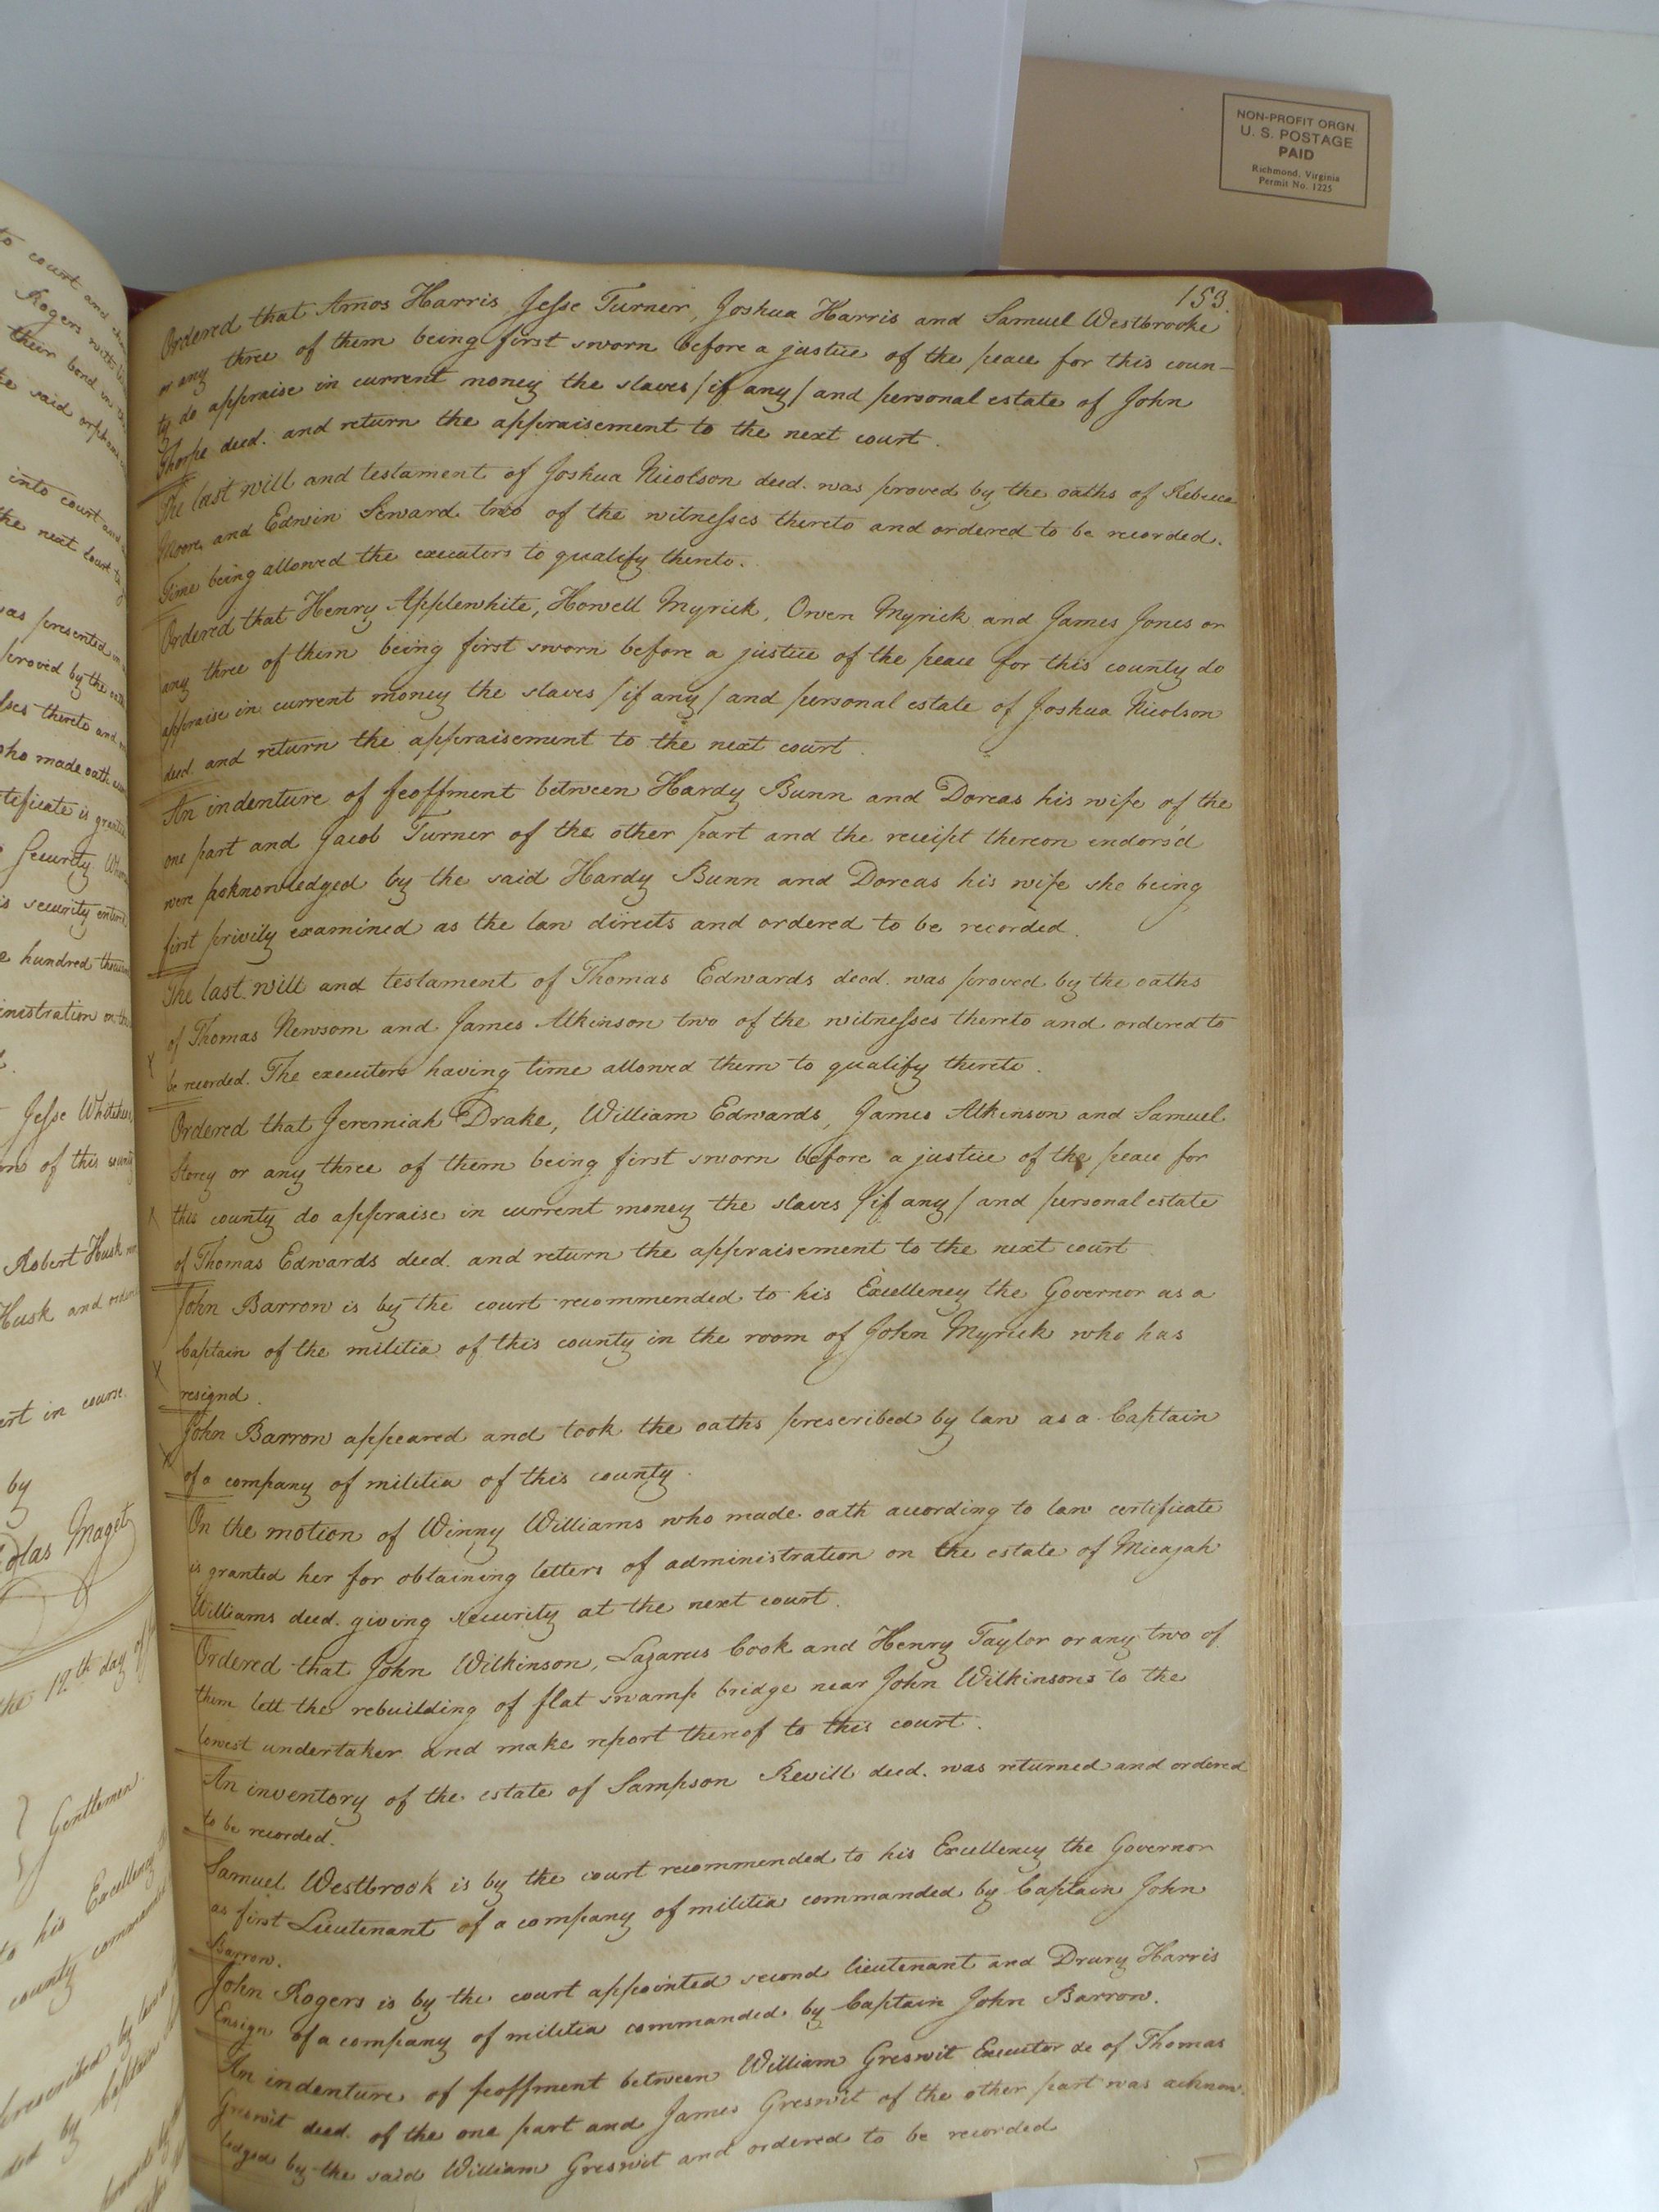 NON-PROFIT ORGN.
U. S. POSTAGE
PAID
Richmond, Virginia
Permit No. 1225
to court and
Rogers with
their bond in
said orphans
into court and
the next Court
was presented
proved by the oath
thereto and
who made oath
is granted
Security
is security enter
hundred thousand
administration on
Jesse Whitehead
of this county
Robert Husk
Husk and order
court in course.
by
Maget
the 12.th day of
Gentlemen
to his Excellency
county commanded
prescribed by law
by Captain
153.
Ordered that Amos Harris, Jesse Turner, Joshua Harris and Samuel Westbrooke
or any three of them being first sworn before a justice of the peace for this coun-
ty do appraise in current money the slaves / if any / and personal estate of John
Thorpe deed. and return the appraisement to the next court.
The last will and testament of Joshua Nicolson deed. was proved by the oaths of Rebecca
Moore and Edwin Seward two of the witnesses thereto and ordered to be recorded.
Time being allowed the executors to qualify thereto.
Ordered that Henry Applewhite, Howell Myrick, Owen Myrick and James Jones or
any three of them being first sworn before a justice of the peace for this county do
appraise in current money the slaves / if any / and personal estate of Joshua Nicolson
deed. and return the appraisement to the next court.
An indenture of feoffment between Hardy Bunn and Dorcas his wife of the
one part and Jacob Turner of the other part and the receipt thereon endors'd
were acknowledged by the said Hardy Bunn and Dorcas his wife she being
first privily examined as the law directs and ordered to be recorded.
The last will and testament of Thomas Edwards deed. was proved by the oaths
of Thomas Newsom and James Atkinson two of the witnesses thereto and ordered to
be recorded. The executors having time allowed them to qualify thereto.
Ordered that Jeremiah Drake, William Edwards, James Atkinson and Samuel
Storey or any three of them being first sworn before a justice of the peace for
this county do appraise in current money the slaves / if any / and personal estate
of Thomas Edwards deed. and return the appraisement to the next court
John Barrow is by the court recommended to his Excellency the Governor as a
Captain of the militia of this county in the room of John Myrick who has
resignd.
John Barrow appeared and took the oaths prescribed by law as a Captain
of a company of militia of this county.
On the motion of Winny Williams who made oath according to law certificate
is granted her for obtaining letters of administration on the estate of Micajah
Williams deed. giving security at the next court.
Ordered that John Wilkinson, Lazarus Cook and Henry Taylor or any two of
them lett the rebuilding of flat swamp bridge near John Wilkinsons to the
lowest undertaker and make report thereof to this court.
An inventory of the estate of Sampson Revill deed. was returned and ordered
to be recorded.
Samuel Westbrook is by the court recommended to his Excellency the Governor
as first Lieutenant of a company of militia commanded by Captain John
Barrow.
John Rogers is by the court appointed second lieutenant and Drury Harris
Ensign of a company of militia commanded by Captain John Barrow.
An indenture of feoffment between William Greswit Executor &c of Thomas
Greswit deed. of the one part and James Greswit of the other part was acknow-
ledged by the said William Greswit and ordered to be recorded